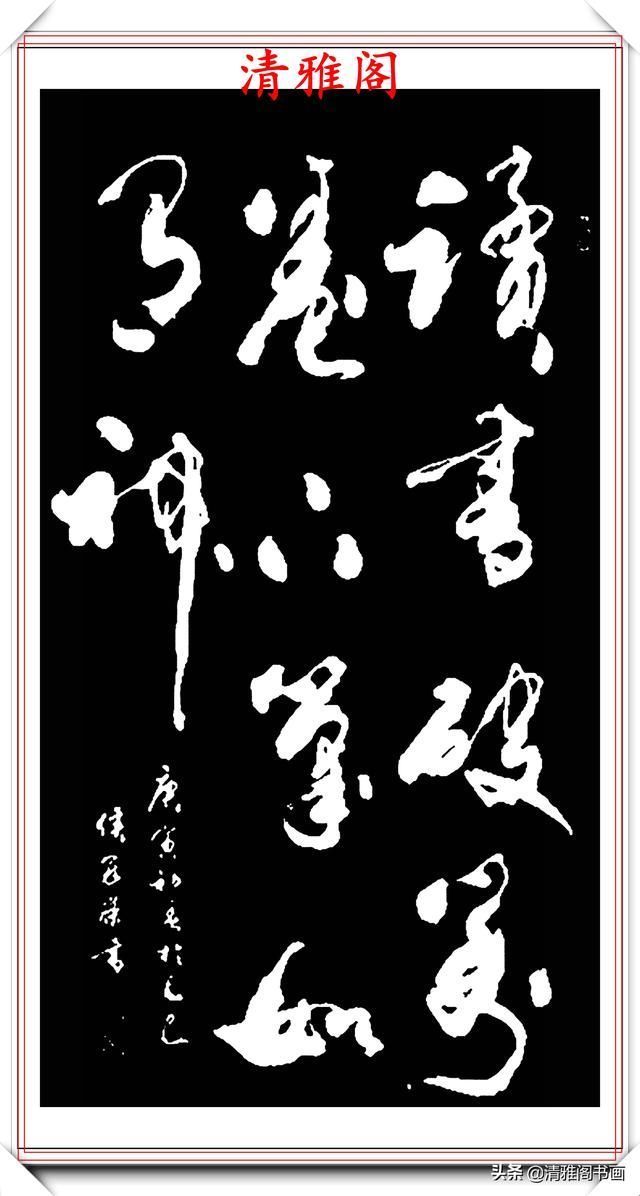 清雅阁
讀書破萬
卷下筆如
有神
庚寅初春於
侯
書
头条 @清雅阁书画